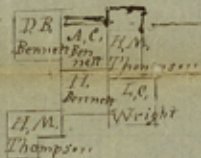 D. B.
Bennett
A. C.
Ben
nett
H. M.
Thompson
H.
Bennett
L. C.
Wright
H. M.
Thompson